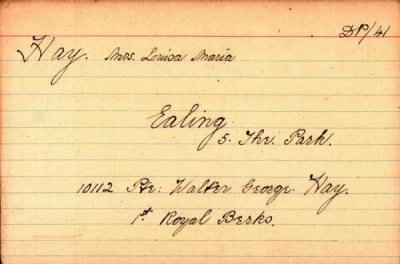 DP/41
Hay. Mrs. Louisa Maria
Ealing.
5. The. Park.
10112 Pte: Walter George. Hay.
1st Royal Berks.